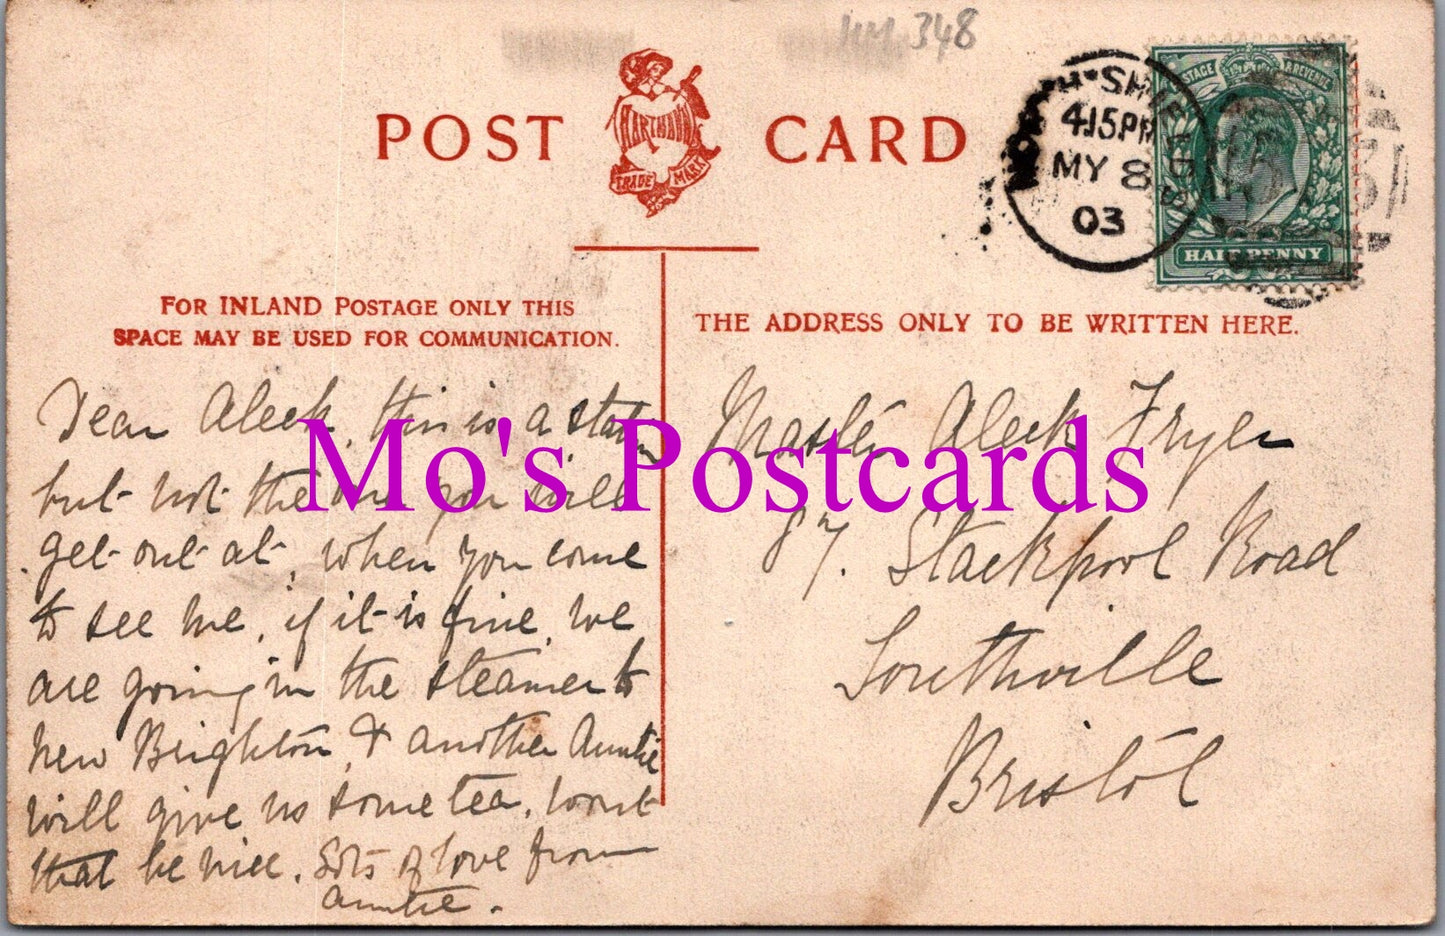 HM 348
POST CARD
HARTMANN
TRADE MARK
NORTH SHIELDS
4.15PM
MY 8
03
POSTAGE & REVENUE
HALF PENNY
FOR INLAND POSTAGE ONLY THIS
SPACE MAY BE USED FOR COMMUNICATION.
THE ADDRESS ONLY TO BE WRITTEN HERE.
Dear Aleck, this is a station
but not the one you will
get out at, when you come
to see me, if it is fine, we
are going in the steamer to
New Brighton, & another Auntie
will give us some tea, wont
that be nice. Lots of love from
Auntie.
Master Aleck Fryer
87. Stackpool Road
Southville
Bristol
Mo's Postcards